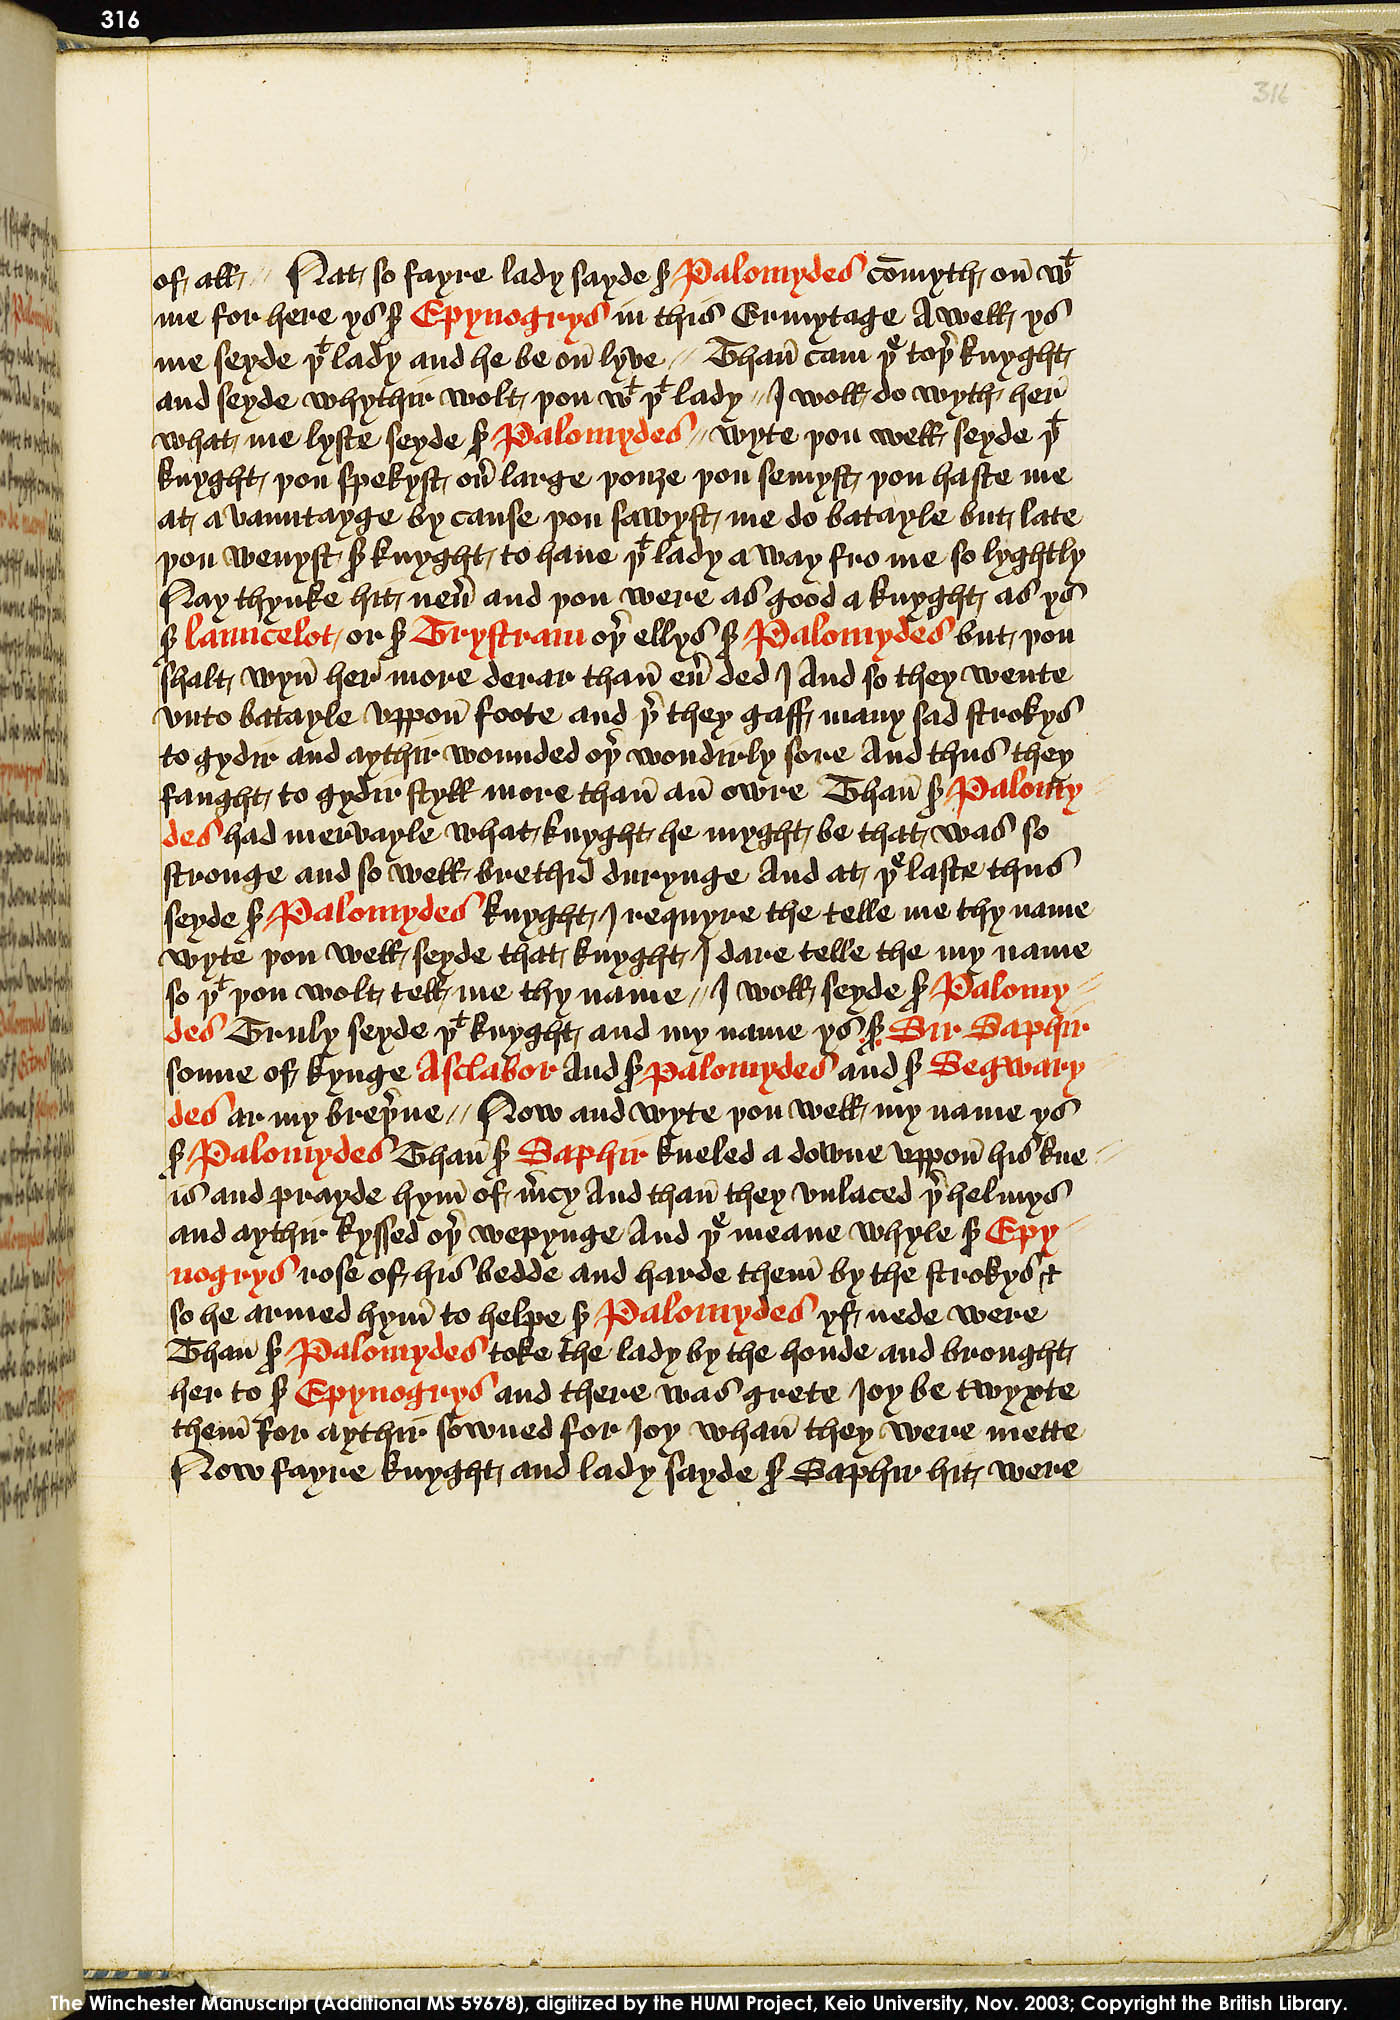 316
316
of all // Nat so fayre lady sayde sʳ Palomydes cōmyth on̄ wᵗ
me for here ys sʳ Epynogrys in this Ermytage A well ys
me seyde þᵗ lady and he be on̄ lyve // Than̄ cam þᵉ toþʳ knyght
and seyde whythir wolt þou wᵗ þᵗ lady // I woll do wyth her̄
what me lyste seyde sʳ Palomydes // wyte þou well seyde þᵗ
knyght þou spekyst oūʳ large þouȝe þou semyst þou haste me
at a vauntayge by cause þou sawyst me do batayle but late
þou wenyst sʳ knyght to haue þᵗ lady a way fro me so lyghtly
Nay thynke hit neūʳ and þou were as good a knyght as ys
sʳ launcelot or sʳ Trystram oþʳ ellys sʳ Palomydes but þou
shalt wyn̄ her̄ more derar than̄ eūʳ ded I And so they wente
vnto batayle vppon̄ foote and þʳ they gaff many sad strokys
to gydir and aythir wounded oþʳ wondirly sore And thus they
faught to gydir styll more than̄ an̄ owre Than̄ sʳ Palomy
des had mervayle what knyght he myght be that was so
stronge and so well brethid durynge And at þᵉ laste thus
seyde sʳ Palomydes knyght I requyre the telle me thy name
wyte þou well seyde that knyght I dare telle the my name
so þᵗ þou wolt tell me thy name // I woll seyde sʳ Palomy
des Truly seyde þᵗ knyght and my name ys sʳ Sir Saphir
sonne of kynge Asclabor And sʳ palomydes and sʳ Segwary
des ar my breþʳne // Now and wyte þou well my name ys
sʳ Palomydes Than̄ sʳ Saphir kneled a downe vppon̄ his kne
is and prayde hym̄ of mʳcy And than̄ they vnlaced þʳ helmys
and aythir kyssed oþʳ wepynge And þᵉ meane whyle sʳ Epy
nogrys rose of his bedde and harde them̄ by the strokys &
so he armed hym̄ to helpe sʳ Palomydes yf nede were
Than̄ sʳ Palomydes toke the lady by the honde and brought
her to sʳ Epynogrys and there was grete Joy be twyxte
them̄ for aythir sowned for Joy whan̄ they were mette
Now fayre knyght and lady sayde sʳ Saphir hit were
The Winchester Manuscript (Additional MS 59678), digitized by the HUMI Project, Keio University, Nov. 2003; Copyright the British Library.